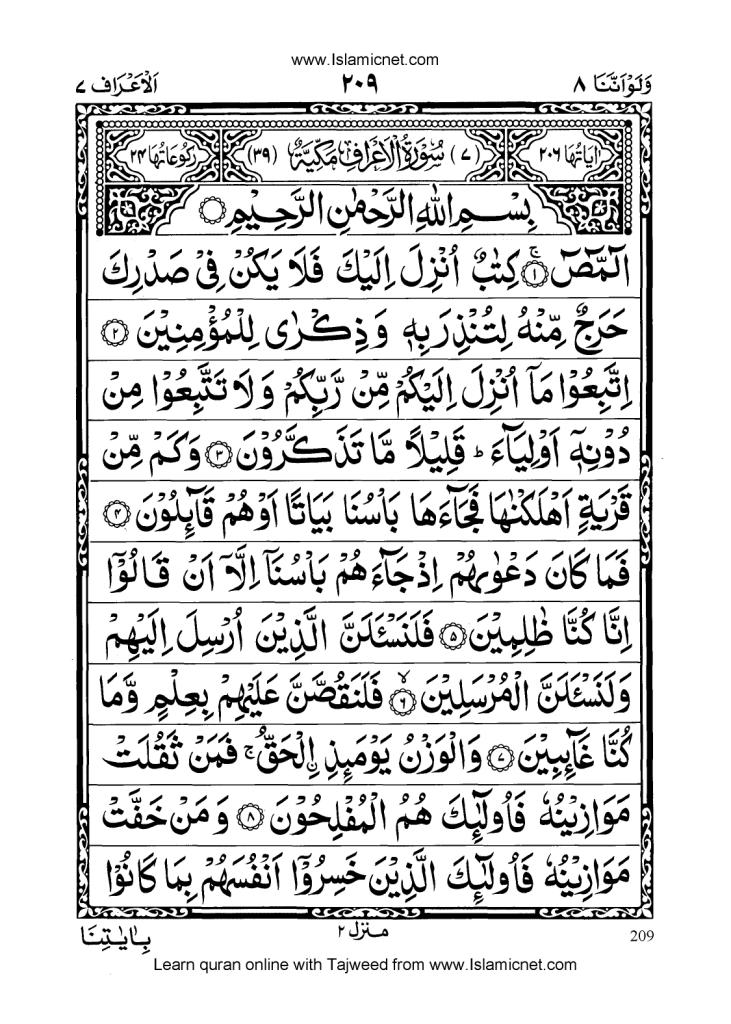 www.Islamicnet.com
وَلَوْ اَنَّنَا ٨ ٢٠٩ اَلْاَعْرَاف ٧
اٰيَاتُهَا ٢٠٦ (٧) سُوْرَةُ الْاَعْرَافِ مَكِّيَّةٌ (٣٩) رُكُوْعَاتُهَا ٢٤
بِسْمِ اللهِ الرَّحْمٰنِ الرَّحِيْمِ
الٓمّٓصٓ ۚ﴿١﴾ كِتٰبٌ اُنْزِلَ اِلَيْكَ فَلَا يَكُنْ فِيْ صَدْرِكَ
حَرَجٌ مِّنْهُ لِتُنْذِرَ بِهٖ وَذِكْرٰى لِلْمُؤْمِنِيْنَ ﴿٢﴾
اِتَّبِعُوْا مَاۤ اُنْزِلَ اِلَيْكُمْ مِّنْ رَّبِّكُمْ وَلَا تَتَّبِعُوْا مِنْ
دُوْنِهٖۤ اَوْلِيَآءَ ؕ قَلِيْلًا مَّا تَذَكَّرُوْنَ ﴿٣﴾ وَكَمْ مِّنْ
قَرْيَةٍ اَهْلَكْنٰهَا فَجَآءَهَا بَاْسُنَا بَيَاتًا اَوْ هُمْ قَآئِلُوْنَ ﴿٤﴾
فَمَا كَانَ دَعْوٰىهُمْ اِذْ جَآءَهُمْ بَاْسُنَاۤ اِلَّاۤ اَنْ قَالُوْۤا
اِنَّا كُنَّا ظٰلِمِيْنَ ﴿٥﴾ فَلَنَسْـَٔلَنَّ الَّذِيْنَ اُرْسِلَ اِلَيْهِمْ
وَلَنَسْـَٔلَنَّ الْمُرْسَلِيْنَ ۙ﴿٦﴾ فَلَنَقُصَّنَّ عَلَيْهِمْ بِعِلْمٍ وَّمَا
كُنَّا غَآئِبِيْنَ ﴿٧﴾ وَالْوَزْنُ يَوْمَئِذِ ۨالْحَقُّ ۚ فَمَنْ ثَقُلَتْ
مَوَازِيْنُهٗ فَاُولٰٓئِكَ هُمُ الْمُفْلِحُوْنَ ﴿٨﴾ وَمَنْ خَفَّتْ
مَوَازِيْنُهٗ فَاُولٰٓئِكَ الَّذِيْنَ خَسِرُوْۤا اَنْفُسَهُمْ بِمَا كَانُوْا
بِاٰيٰتِنَا منزل ٢ 209
Learn quran online with Tajweed from www.Islamicnet.com